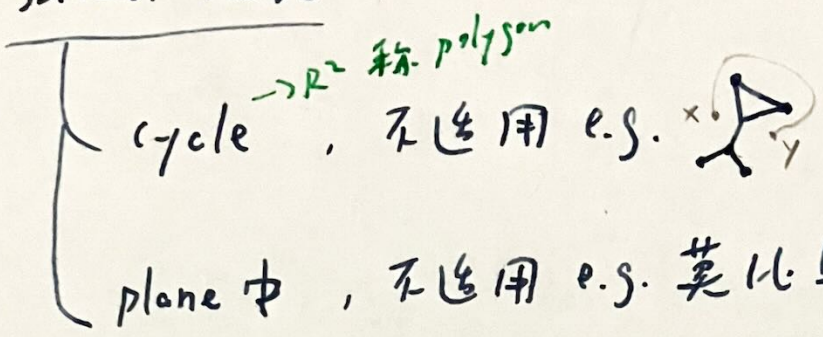 →R² 称 polygon
cycle , 不适用 e.g. x y
plane 中 , 不适用 e.g. 莫比